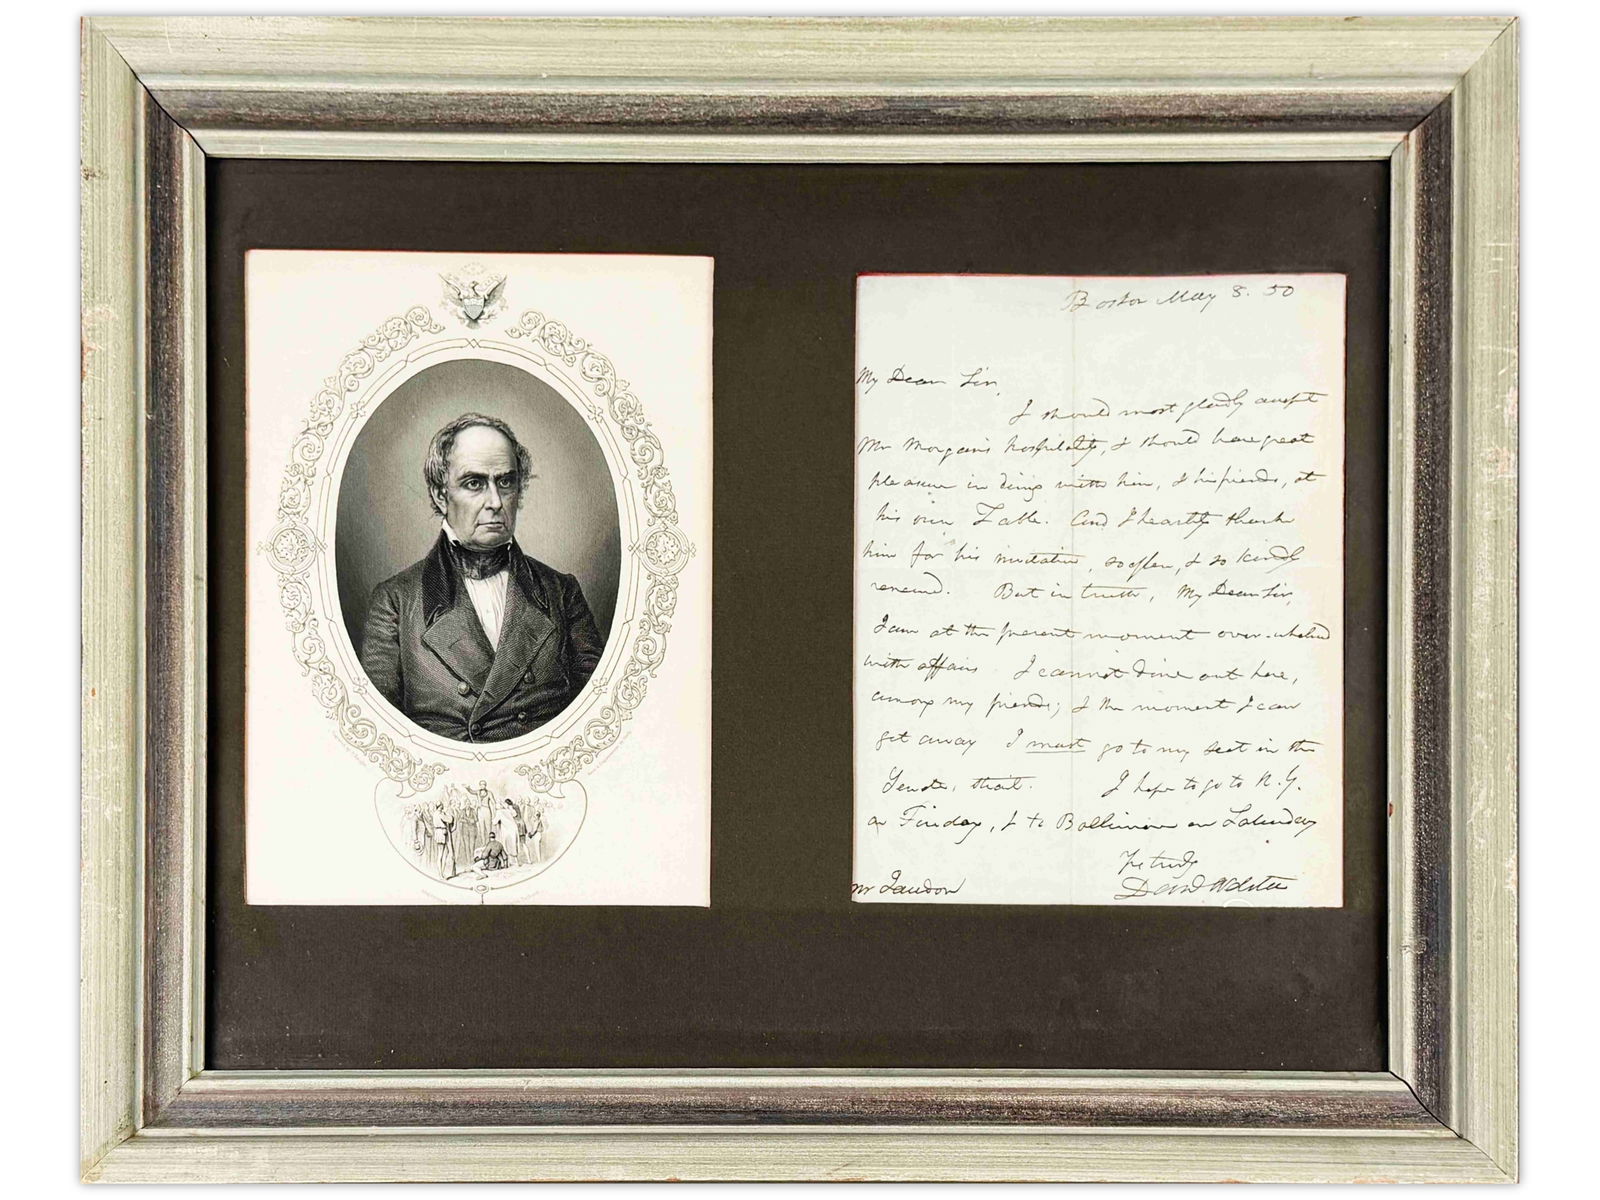 Boston May 8. 50
My Dear Sir,
I should most gladly accept
Mr Morgan's hospitality, & should have great
pleasure in dining with him, & his friends, at
his own Table. And I heartily thank
him for his invitation, so often, & so kindly
renewed. But in truth, My Dear Sir,
I am at the present moment over-whelmed
with affairs. I cannot dine out here,
among my friends; & the moment I can
get away I must go to my seat in the
Senate, that. I hope to go to N.Y.
on Friday, & to Baltimore on Saturday
Yrs truly
Danl Webster
Mr